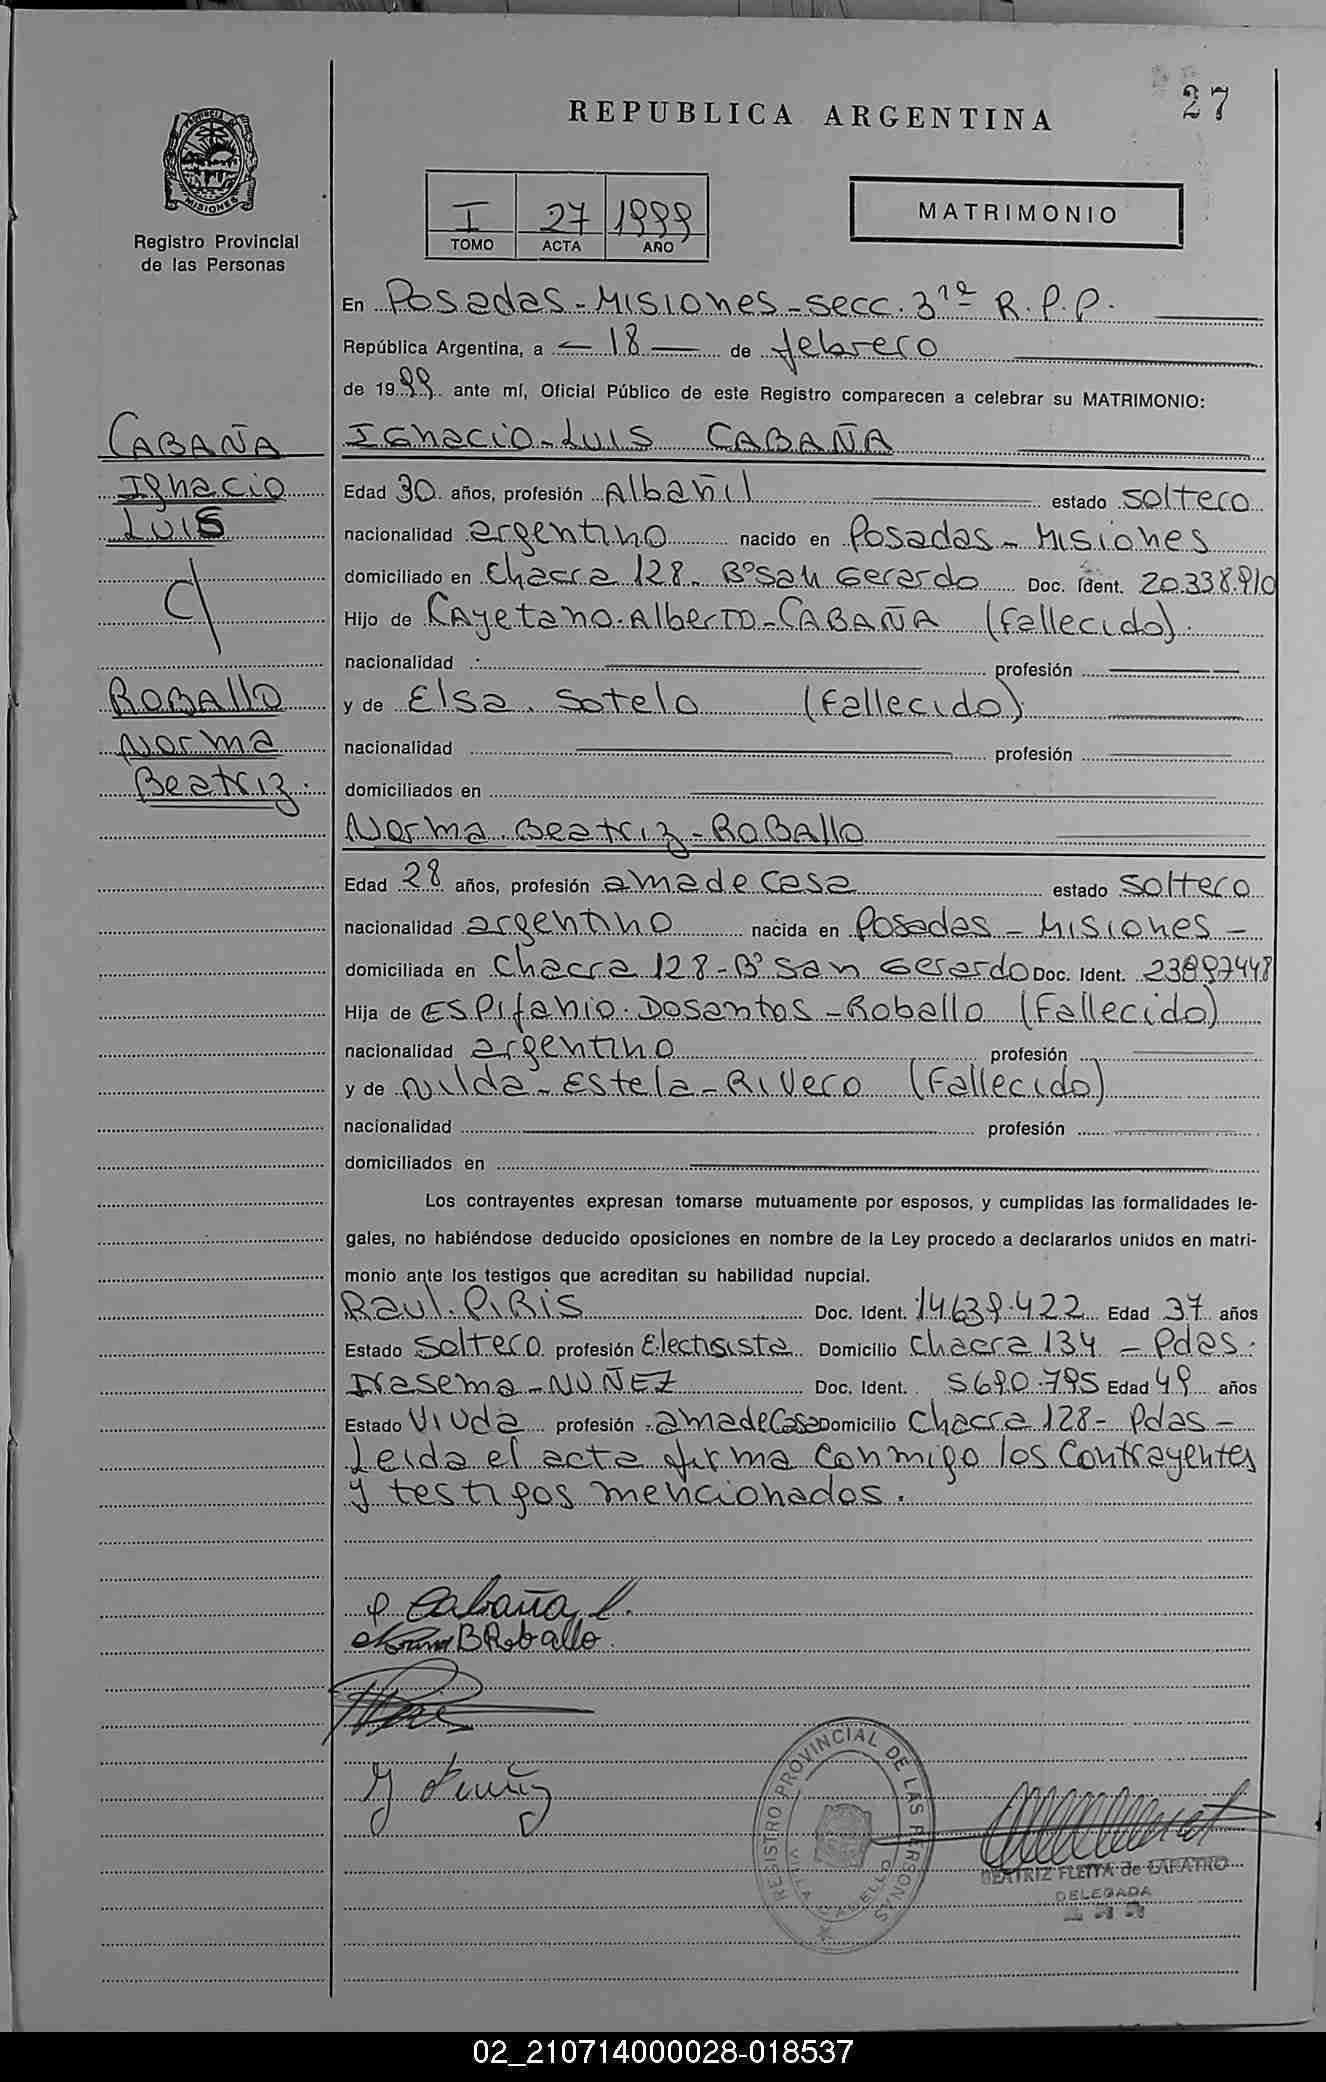 27
REPUBLICA ARGENTINA
PROVINCIA DE
MISIONES
Registro Provincial
de las Personas
I 27 1999
TOMO ACTA AÑO
MATRIMONIO
En Posadas - Misiones - secc. 3ra R.P.P.
República Argentina, a - 18 - de febrero
de 1999 ante mí, Oficial Público de este Registro comparecen a celebrar su MATRIMONIO:
CABAÑA
Ignacio
LUIS
c/
ROBALLO
Norma
Beatriz.
Ignacio - LUIS CABAÑA
Edad 30 años, profesión Albañil estado soltero
nacionalidad argentino nacido en Posadas - Misiones
domiciliado en Chacra 128 - Bº San Gerardo Doc. Ident. 20.338.910
Hijo de CAyetano. Alberto - CABAÑA (fallecido).
nacionalidad profesión
y de Elsa. Sotelo (Fallecido)
nacionalidad profesión
domiciliados en
Norma. Beatriz - ROBAllo
Edad 28 años, profesión ama de casa estado soltero
nacionalidad argentino nacida en Posadas - Misiones -
domiciliada en Chacra 128 - Bº San Gerardo Doc. Ident. 23897448
Hija de ESPIfanio. Dosantos - Roballo (Fallecido)
nacionalidad argentino profesión
y de Nilda - Estela - Rivero (Fallecido)
nacionalidad profesión
domiciliados en
Los contrayentes expresan tomarse mutuamente por esposos, y cumplidas las formalidades le-
gales, no habiéndose deducido oposiciones en nombre de la Ley procedo a declararlos unidos en matri-
monio ante los testigos que acreditan su habilidad nupcial.
Raul. PIRIS Doc. Ident. 14.639.422 Edad 37 años
Estado Soltero profesión Electisista Domicilio Chacra 134 - Pdas.
Irasema - NUÑEZ Doc. Ident. 5.690.795 Edad 49 años
Estado Viuda profesión ama de Casa Domicilio Chacra 128 - Pdas -
Leida el acta firma conmigo los Contrayentes
y testigos mencionados.
Cabaña L.
Norma B Roballo
REGISTRO PROVINCIAL DE LAS PERSONAS
VILLA CABELLO
BEATRIZ FLEITA de LAFATRO
DELEGADA
02_210714000028-018537